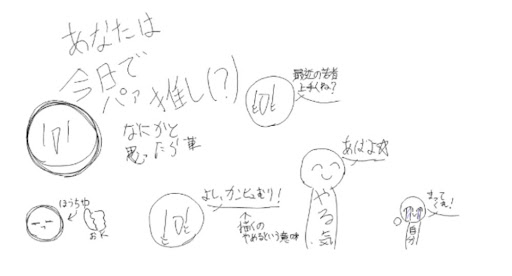 あなたは
今日で
パァ推し(?)
なにかと
思ったら草
最近の若者
上手くね?
ほうち中
よし、カンヒュむり!
描くの
やめるという意味
あばよ☆
やる気
まって
くれ!
自分